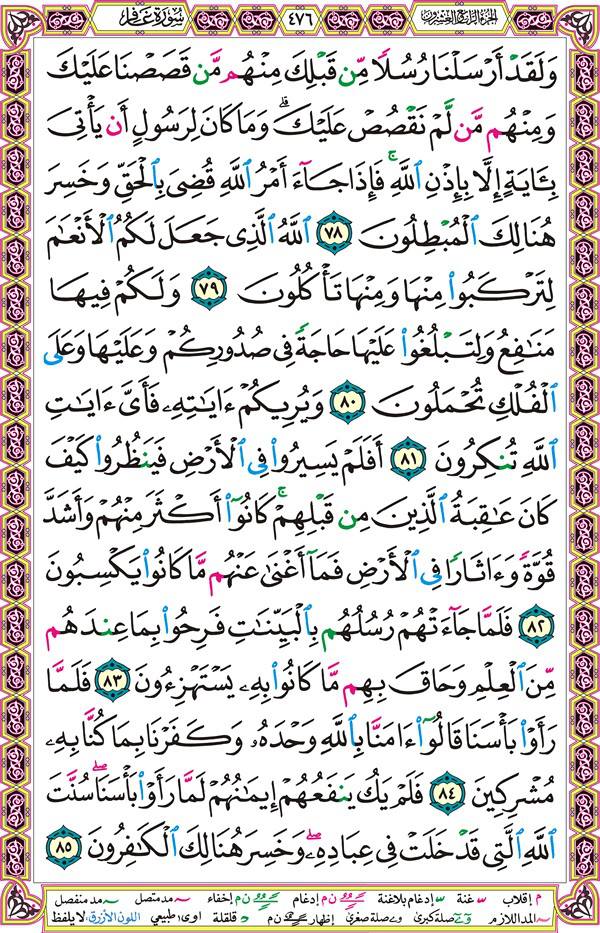 سورة غافر
٤٧٦
الجزء الرابع والعشرون
وَلَقَدْ أَرْسَلْنَا رُسُلًا مِّن قَبْلِكَ مِنْهُم مَّن قَصَصْنَا عَلَيْكَ
وَمِنْهُم مَّن لَّمْ نَقْصُصْ عَلَيْكَ ۗ وَمَا كَانَ لِرَسُولٍ أَن يَأْتِىَ
بِـَٔايَةٍ إِلَّا بِإِذْنِ ٱللَّهِ ۚ فَإِذَا جَآءَ أَمْرُ ٱللَّهِ قُضِىَ بِٱلْحَقِّ وَخَسِرَ
هُنَالِكَ ٱلْمُبْطِلُونَ ٧٨ ٱللَّهُ ٱلَّذِى جَعَلَ لَكُمُ ٱلْأَنْعَٰمَ
لِتَرْكَبُوا۟ مِنْهَا وَمِنْهَا تَأْكُلُونَ ٧٩ وَلَكُمْ فِيهَا
مَنَٰفِعُ وَلِتَبْلُغُوا۟ عَلَيْهَا حَاجَةً فِى صُدُورِكُمْ وَعَلَيْهَا وَعَلَى
ٱلْفُلْكِ تُحْمَلُونَ ٨٠ وَيُرِيكُمْ ءَايَٰتِهِۦ فَأَىَّ ءَايَٰتِ
ٱللَّهِ تُنكِرُونَ ٨١ أَفَلَمْ يَسِيرُوا۟ فِى ٱلْأَرْضِ فَيَنظُرُوا۟ كَيْفَ
كَانَ عَٰقِبَةُ ٱلَّذِينَ مِن قَبْلِهِمْ ۚ كَانُوٓا۟ أَكْثَرَ مِنْهُمْ وَأَشَدَّ
قُوَّةً وَءَاثَارًا فِى ٱلْأَرْضِ فَمَآ أَغْنَىٰ عَنْهُم مَّا كَانُوا۟ يَكْسِبُونَ
٨٢ فَلَمَّا جَآءَتْهُمْ رُسُلُهُم بِٱلْبَيِّنَٰتِ فَرِحُوا۟ بِمَا عِندَهُم
مِّنَ ٱلْعِلْمِ وَحَاقَ بِهِم مَّا كَانُوا۟ بِهِۦ يَسْتَهْزِءُونَ ٨٣ فَلَمَّا
رَأَوْا۟ بَأْسَنَا قَالُوٓا۟ ءَامَنَّا بِٱللَّهِ وَحْدَهُۥ وَكَفَرْنَا بِمَا كُنَّا بِهِۦ
مُشْرِكِينَ ٨٤ فَلَمْ يَكُ يَنفَعُهُمْ إِيمَٰنُهُمْ لَمَّا رَأَوْا۟ بَأْسَنَا ۖ سُنَّتَ
ٱللَّهِ ٱلَّتِى قَدْ خَلَتْ فِى عِبَادِهِۦ ۖ وَخَسِرَ هُنَالِكَ ٱلْكَٰفِرُونَ ٨٥
م إقلاب غنة إدغام بلاغنة ن م إدغام ن م إخفاء مد متصل مد منفصل
المد اللازم صلة كبرى صلة صغرى إظهار ن م قلقلة اوى؛ طبيعي اللون الأزرق: لا يلفظ